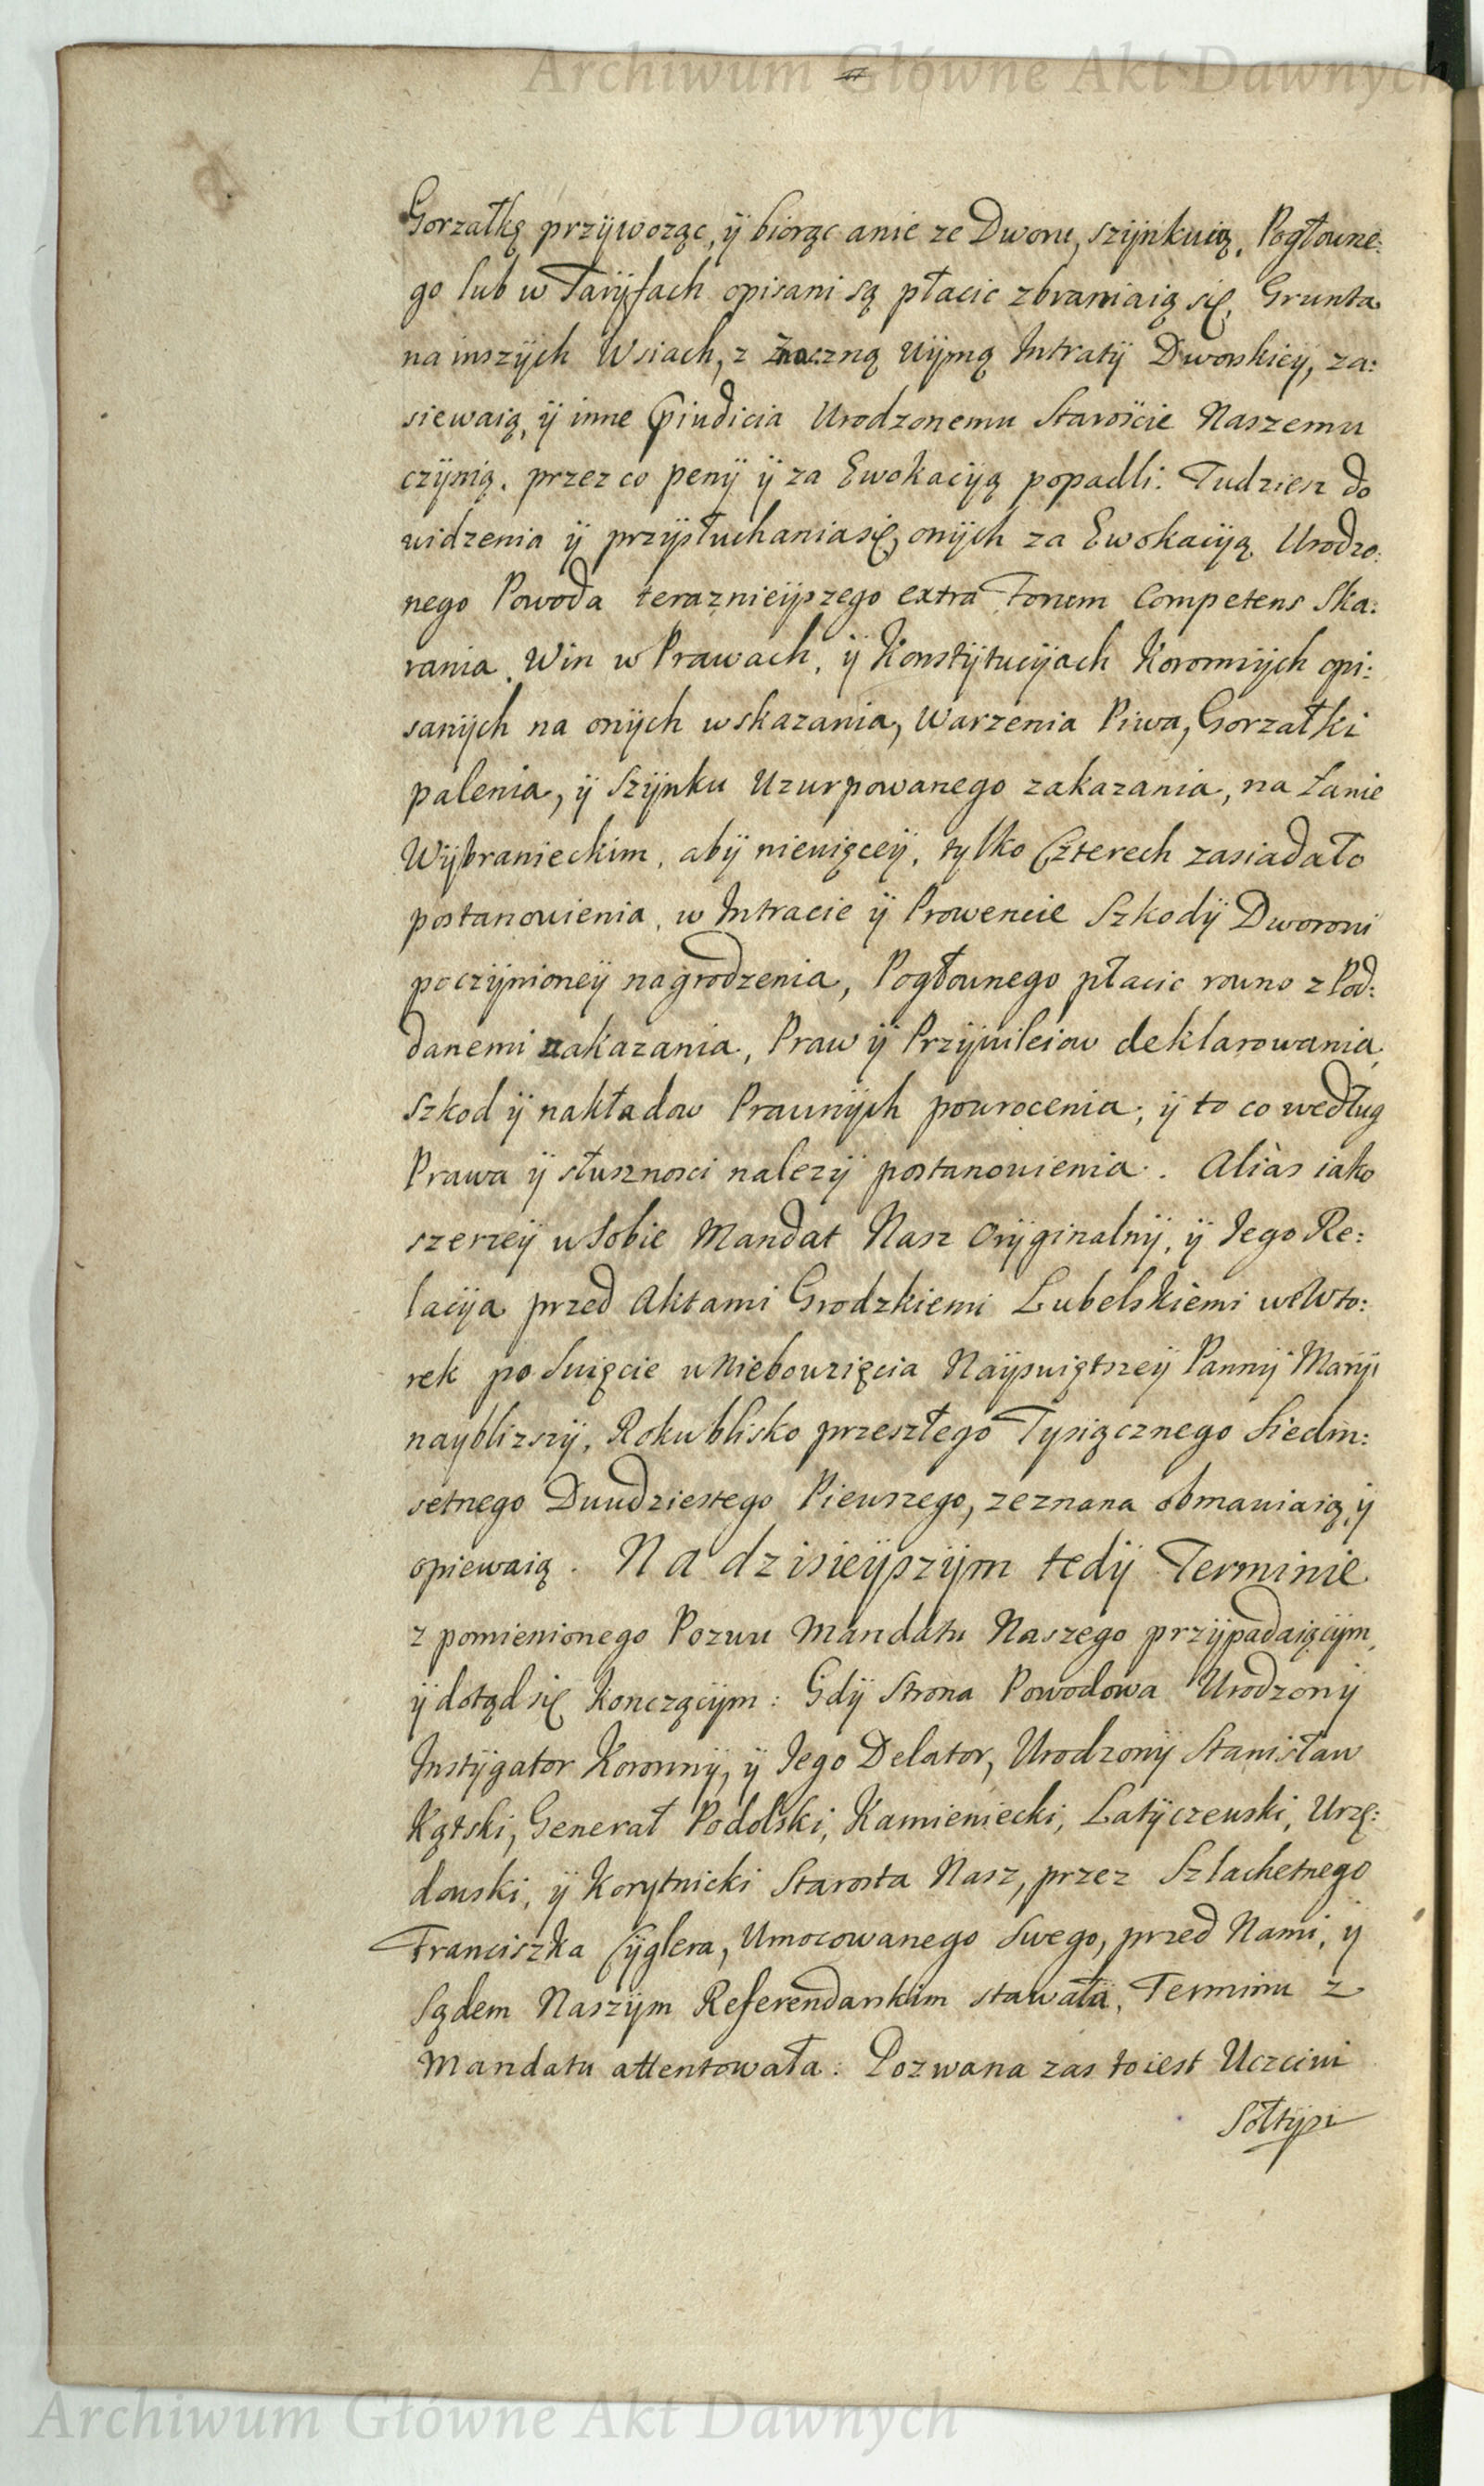 Archiwum Główne Akt Dawnych
Gorzałkę przÿwożąc, ÿ biorąc anie ze Dworu, szÿnkuią, Pogłowne:
go lub w Tarÿfach opisani są płacic zbraniaią się, Grunta
na inszÿch Wsiach, z znaczną uÿmą Intratÿ Dworskieÿ, za:
siewaią, ÿ inne Pjudicia Urodzonemu Staroscie Naszemu
czÿnią. przez co penÿ ÿ za Ewokacÿą popadli. Tudziesz do
widzenia ÿ przÿsłuchania się, onÿch za Ewokacÿą Urodzo:
nego Powoda teraznieÿszego extra Forum Competens Ska:
rania. Win w Prawach, ÿ Konstÿtucÿach Koronnÿch opi:
sanÿch na onÿch wskazania, Warzenia Piwa, Gorzałki
palenia, ÿ Szÿnku Uzurpowanego zakazania, na Łanie
Wÿbranieckim, abÿ niewięceÿ, tylko Czterech zasiadało
postanowienia, w Intracie ÿ Prowencie Szkodÿ Dworowi
poczÿnioneÿ nagrodzenia, Pogłownego płacic rowno z Pod:
danemi nakazania, Praw ÿ Przÿwileiow deklarowania,
szkod ÿ nakładow Prawnÿch powrocenia, ÿ to co według
Prawa ÿ słusznosci nalezÿ postanowienia. Aliàs iako
szerzeÿ w sobie Mandat Nasz Orÿginalnÿ, ÿ Iego Re:
lacÿa przed Aktami Grodzkiemi Lubelskiemi we Wto:
rek po Swięcie w Niebowzięcia Naÿswiętszeÿ Pannÿ Marÿi
nayblizszÿ, Roku blisko przeszłego Tysiącznego Siedm:
setnego Dwudziestego Pierwszego, zeznana obmawiaią, ÿ
opiewaią. Na dzisieÿszÿm tedÿ Terminie
z pomienionego Pozwu Mandatu Naszego przÿpadaiącÿm,
ÿ dotąd się konczącÿm: Gdÿ Strona Powodowa Urodzonÿ
Instÿgator Koronnÿ, ÿ Iego Delator, Urodzonÿ Stanisław
Kątski, Generał Podolski, Kamieniecki, Latÿczewski, Urzę:
dowski, ÿ Korytnicki Starosta Nasz, przez Szlachetnego
Franciszka Cÿglera, Umocowanego Swego, przed Nami, ÿ
Sądem Naszÿm Referendarskim stawała, Terminu z
Mandatu attentowała: Pozwana zas to iest Uczciwi
Sołtÿsi
Archiwum Główne Akt Dawnych